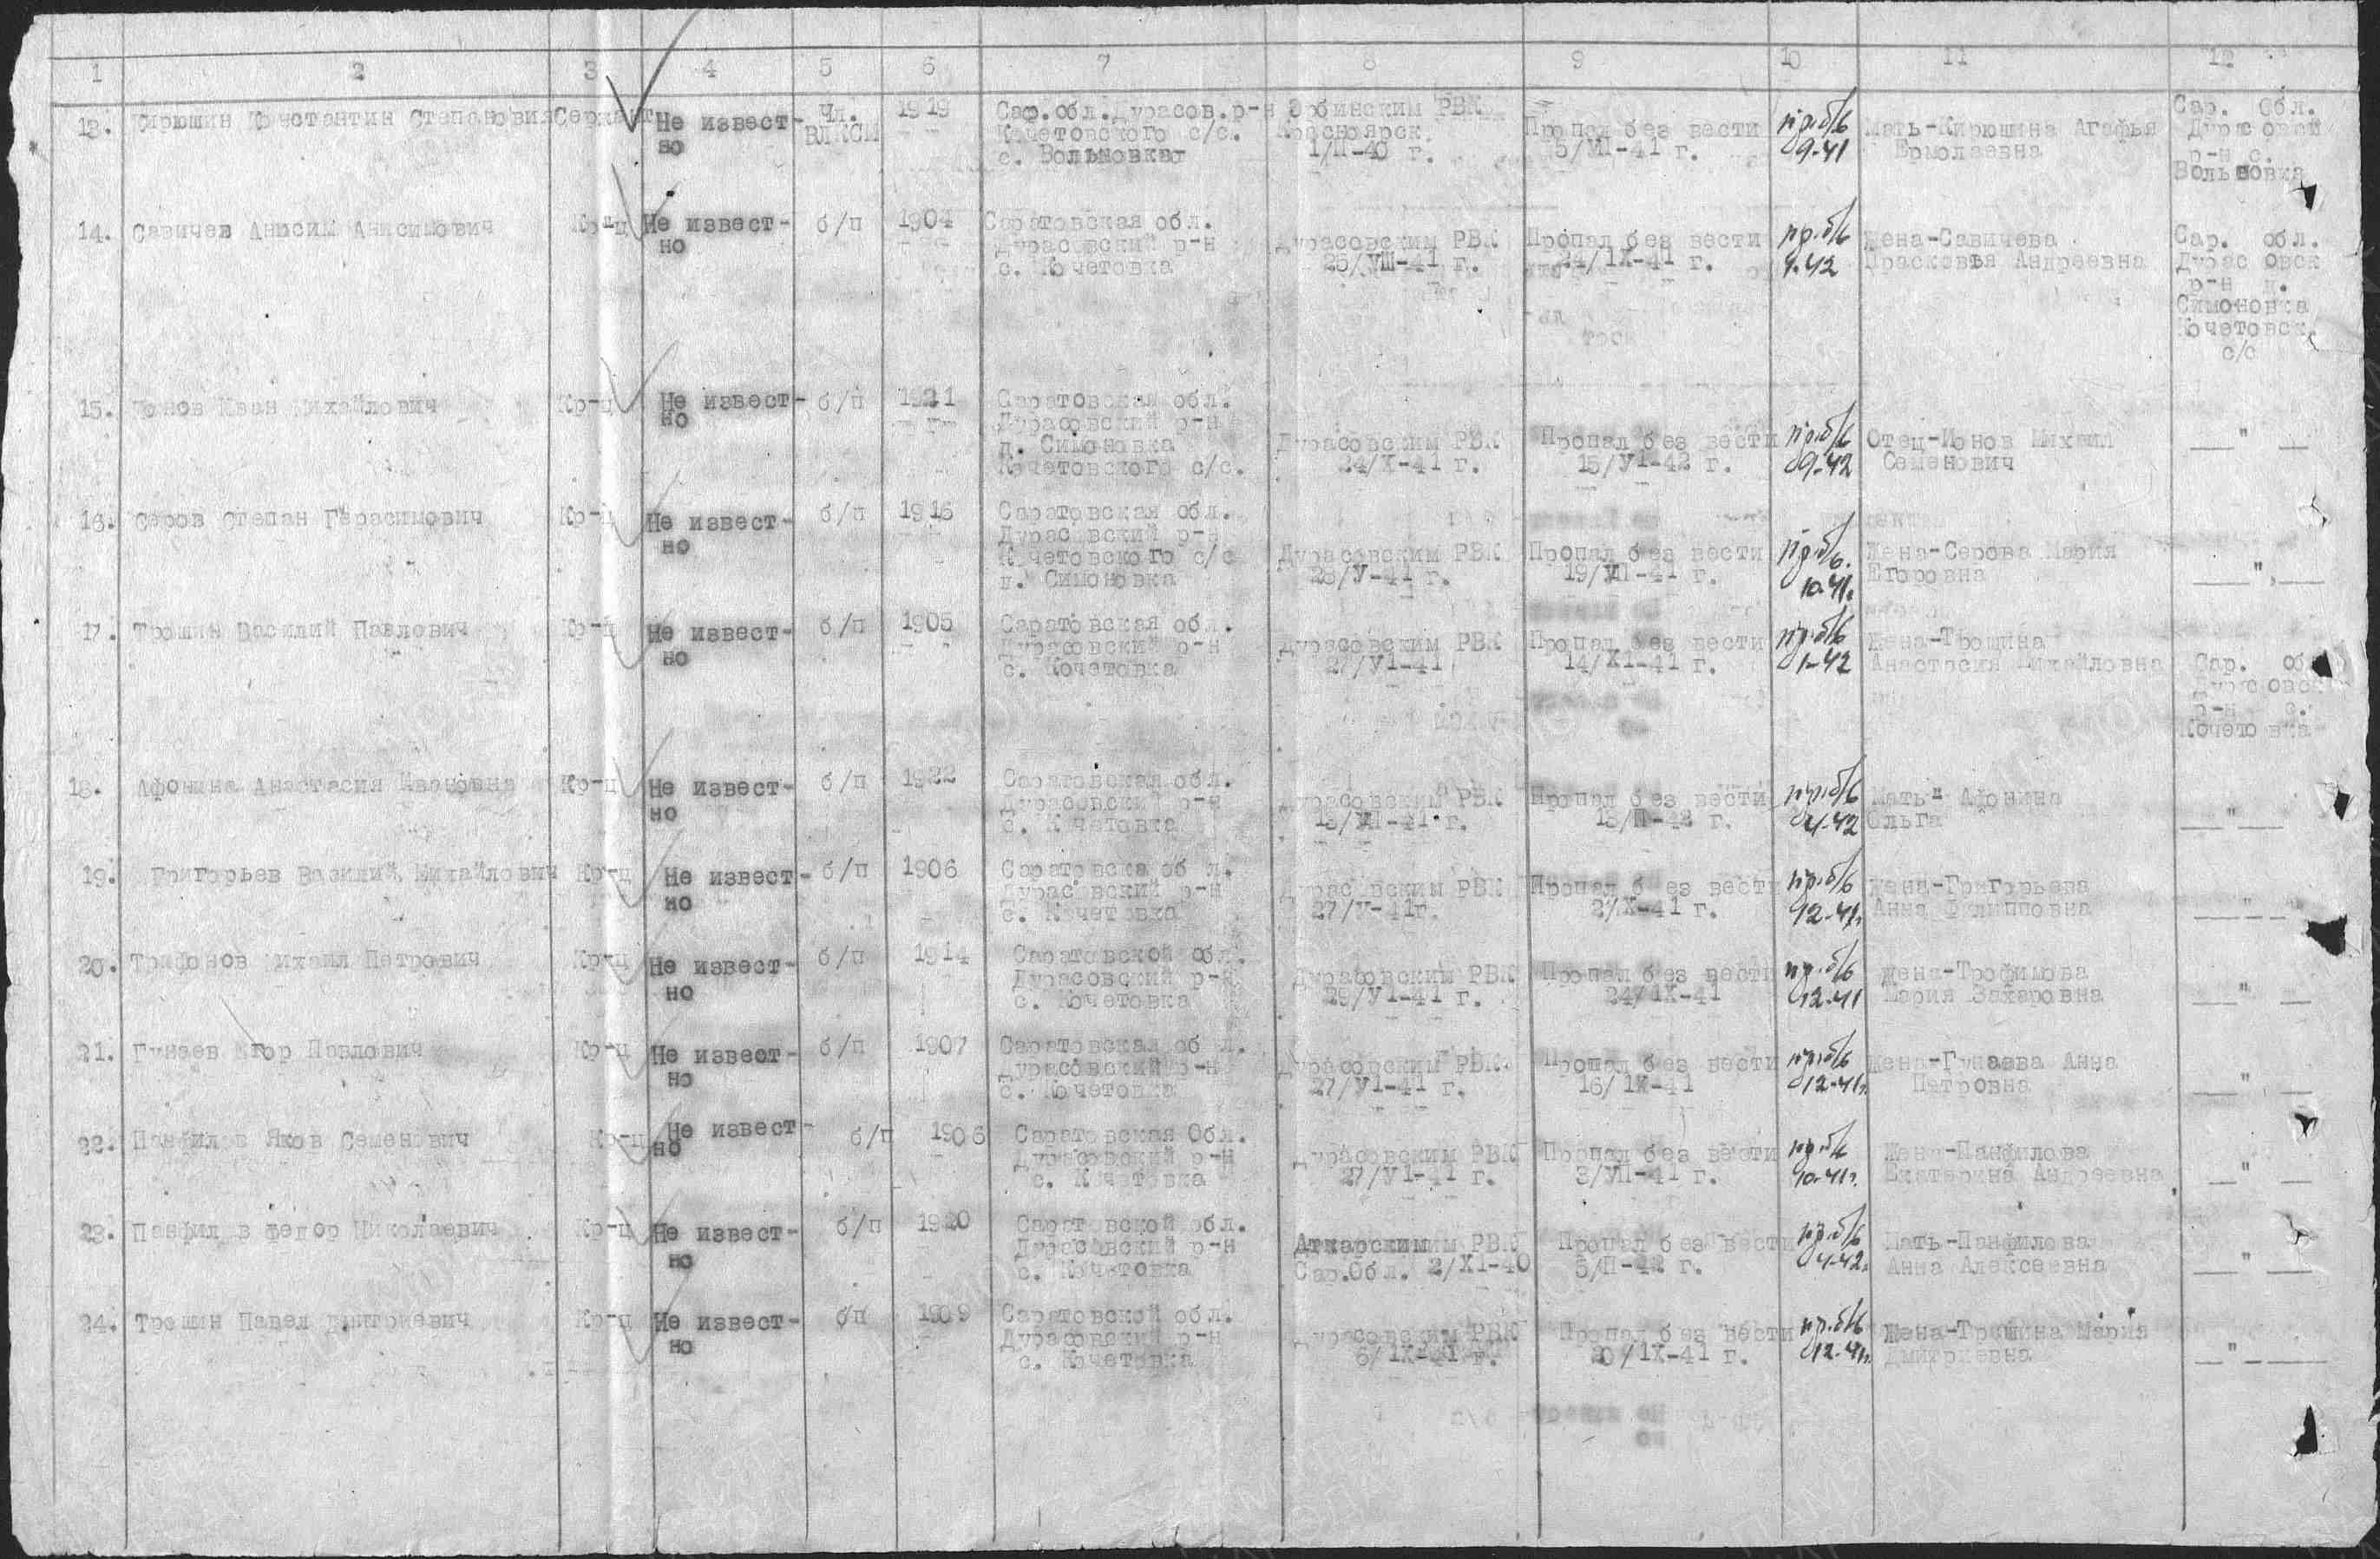 1 2 3 4 5 6 7 8 9 10 11 12
13. Кирюшин Константин Степанович Сержант Не извест- Чл. 1919 Сар.обл.Дурасов.р-н РВК Сар. Обл.
но ВЛКСМ Кочетовского с/с. Красноярск. Пропал без вести пр.б/в Мать-Кирюшина Агафья
с. Вольновка 1/II-40 г. 5/VII-41 г. 9-41 Ермолаевна р-н с.
14. Савичев Анисим Анисимович Кр-ц Не извест- б/п 1904 Саратовская обл.
но Дурасовский р-н Дурасовским РВК Пропал без вести пр.б/в Жена-Савичева Сар. обл.
с. Кочетовка 25/УШ-41 г. 24/IX-41 г. 9.42 Прасковья Андреевна Дурасовск
р-н д.
Симоновка
Кочетовск.
с/с
15. Ионов Иван Михайлович Кр-ц Не извест- б/п 1921 Саратовская обл.
но Дурасовский р-н
д. Симоновка Дурасовским РВК Пропал без вести пр.б/в Отец-Ионов Михаил — " —
Кочетовского с/с. 24/X-41 г. 15/У1-42 г. 9-42 Семенович
16. Серов Степан Герасимович Кр-ц Не извест- б/п 1916 Саратовская обл.
но Дурасовский р-н
Кочетовского с/с Дурасовским РВК Пропал без вести пр.б/в. Жена-Серова Мария
д. Симоновка 28/У-41 г. 19/УП-41 г. 10.41. Егоровна — " —
17. Трошин Василий Павлович Кр-ц Не извест- б/п 1905 Саратовская обл.
но Дурасовский р-н Дурасовским РВК Пропал без вести пр.б/в Жена-Трошина
с. Кочетовка 27/У1-41 14/X1-41 г. 1-42 Анастасия Михайловна Сар. об
Дурасовск
р-н с.
Кочетовка
18. Афонина Анастасия Ивановна Кр-ц Не извест- б/п 1922 Саратовская обл.
но Дурасовский р-н Дурасовским РВК Пропал без вести пр.б/в Мать- Афонина
с. Кочетовка 4-42 Ольга — " —
19. Григорьев Василий Михайлович Кр-ц Не извест- б/п 1906 Саратовска об л.
но Дурасовский р-н Дурасовским РВК Пропал б ез вести пр.б/в Жена-Григорьева
с. Кочетовка 27/У-41г. 41 г. 12-41г. Анна Филипповна — " —
20. Трифонов Михаил Петрович Кр-ц Не извест- б/п 1914 Саратовской обл.
но Дурасовский р-н Дурасовским РВК Пропал без вести пр.б/в Жена-Трофимова
с. Кочетовка 29/У1-41 г. 24/1X-41 12-41 Мария Захаровна — " —
21. Гунаев Егор Павлович Кр-ц Не извест- б/п 1907 Саратовская об л.
но Дурасовский р-н Дурасовским РВК. Пропал без вести пр.б/в Жена-Гунаева Анна
с. Кочетовка 27/У1-41 г. 16/1X-41 12-41г. Петровна — " —
22. Панфилов Яков Семенович Кр-ц Не извест- б/п 1906 Саратовская Обл.
но Дурасовский р-н Дурасовским РВК Пропал без вести пр.б/в Жена-Панфилова
с. Кочетовка 27/У1-41 г. 3/УП-41 г. 10-41г. Екатерина Андреевна — " —
23. Панфил в Федор Николаевич Кр-ц Не извест- б/п 1920 Саратовской обл.
но Дурасовский р-н Аткарским РВК Пропал без вести пр.б/в Мать-Панфилова
с. Кочетовка Сар.Обл. 2/X1-40 5/П-42 г. 4-42. Анна Алексеевна — " —
24. Трошин Павел Дмитриевич Кр-ц Не извест- б/п 1909 Саратовской обл.
но Дурасовский р-н Дурасовским РВК Пропал без вести пр.б/в Жена-Трошина Мария
с. Кочетовка 6/1X-41 г. 20/1X-41 г. 12-41г. Дмитриевна — " —